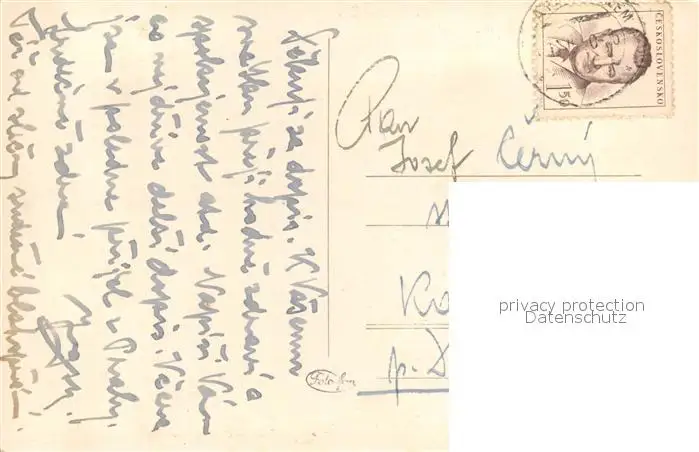 Děkuji za dopis. K Vašemu
svátku přeji hodně zdraví a
spokojenost atd. Napíši Vám
co nejdříve delší dopis. Včera
jsem v poledne přijel z Prahy.
Srdečně zdraví
Pan
Josef Černý
p. D
ČESKOSLOVENSKO
1.50
Fotofon
privacy protection
Datenschutz